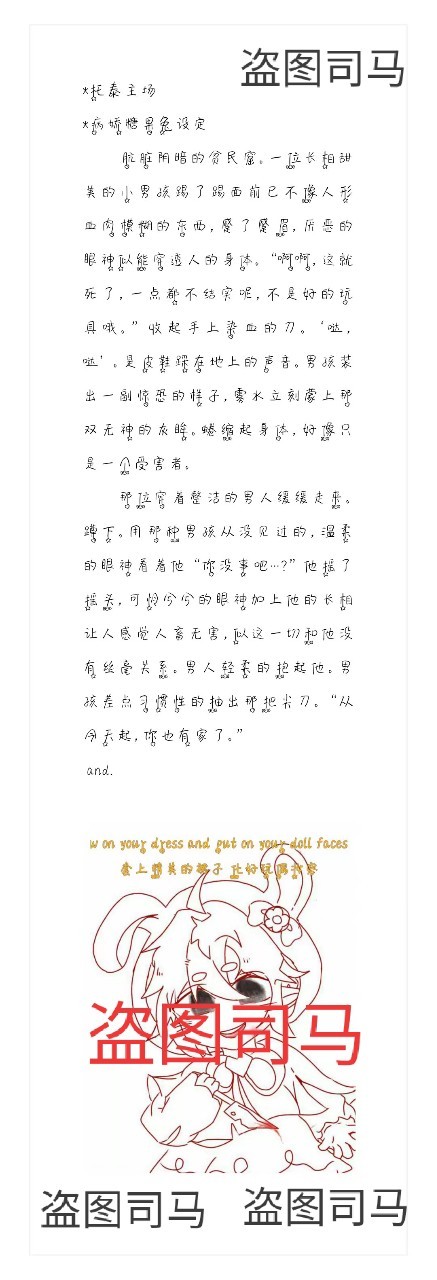 盗图司马
*托泰主场
*病娇糖果兔设定
肮脏阴暗的贫民窟。一位长相甜
美的小男孩踢了踢面前已不像人形
血肉模糊的东西，蹙了蹙眉，厌恶的
眼神似能穿透人的身体。“啊啊，这就
死了，一点都不结实呢，不是好的玩
具哦。”收起手上染血的刀。‘哒，
哒’。是皮鞋踩在地上的声音。男孩装
出一副惊恐的样子，雾水立刻蒙上那
双无神的灰眸。蜷缩起身体，好像只
是一个受害者。
那位穿着整洁的男人缓缓走来。
蹲下。用那种男孩从没见过的，温柔
的眼神看着他“你没事吧…？”他摇了
摇头，可怜兮兮的眼神加上他的长相
让人感觉人畜无害，似这一切和他没
有丝毫关系。男人轻柔的抱起他。男
孩差点习惯性的抽出那把尖刀。“从
今天起，你也有家了。”
and.
w on your dress and put on your doll faces
套上精美的裙子 让好玩偶
盗图司马
盗图司马 盗图司马